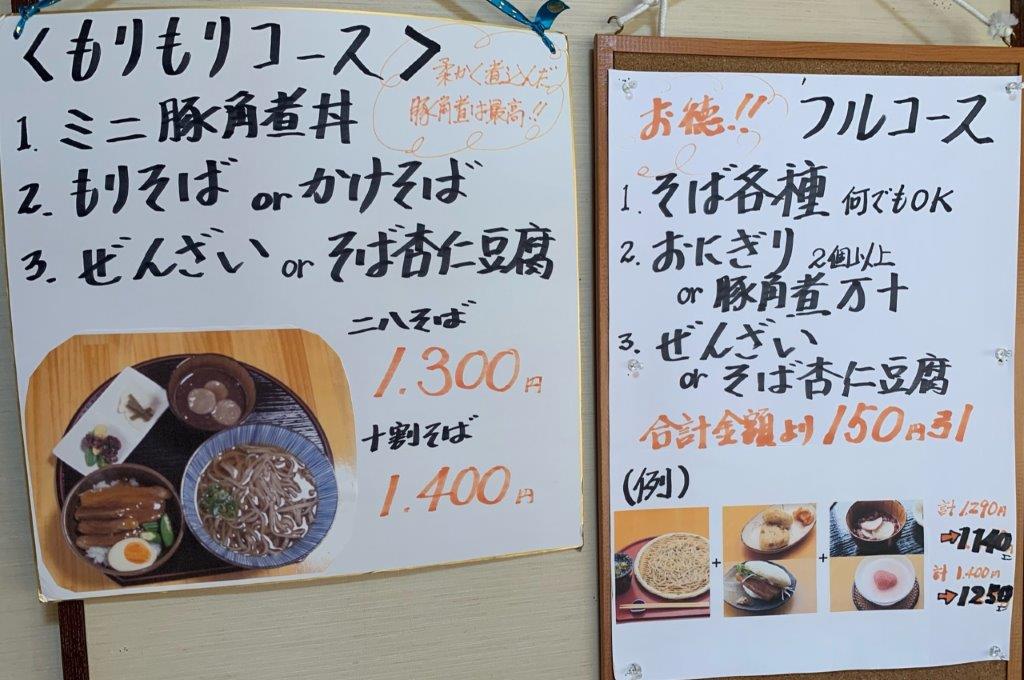 〈もりもりコース〉
柔かく煮込んだ
豚角煮は最高!!
1. ミニ豚角煮丼
2. もりそば or かけそば
3. ぜんざい or そば杏仁豆腐
二八そば
1.300円
十割そば
1.400円
お徳!! フルコース
1. そば各種 何でもOK
2. おにぎり 2個以上
or 豚角煮万十
3. ぜんざい
or そば杏仁豆腐
合計金額より150円引
(例)
計1.290円
➡1.140円
+
+
計1.400円
➡1250円